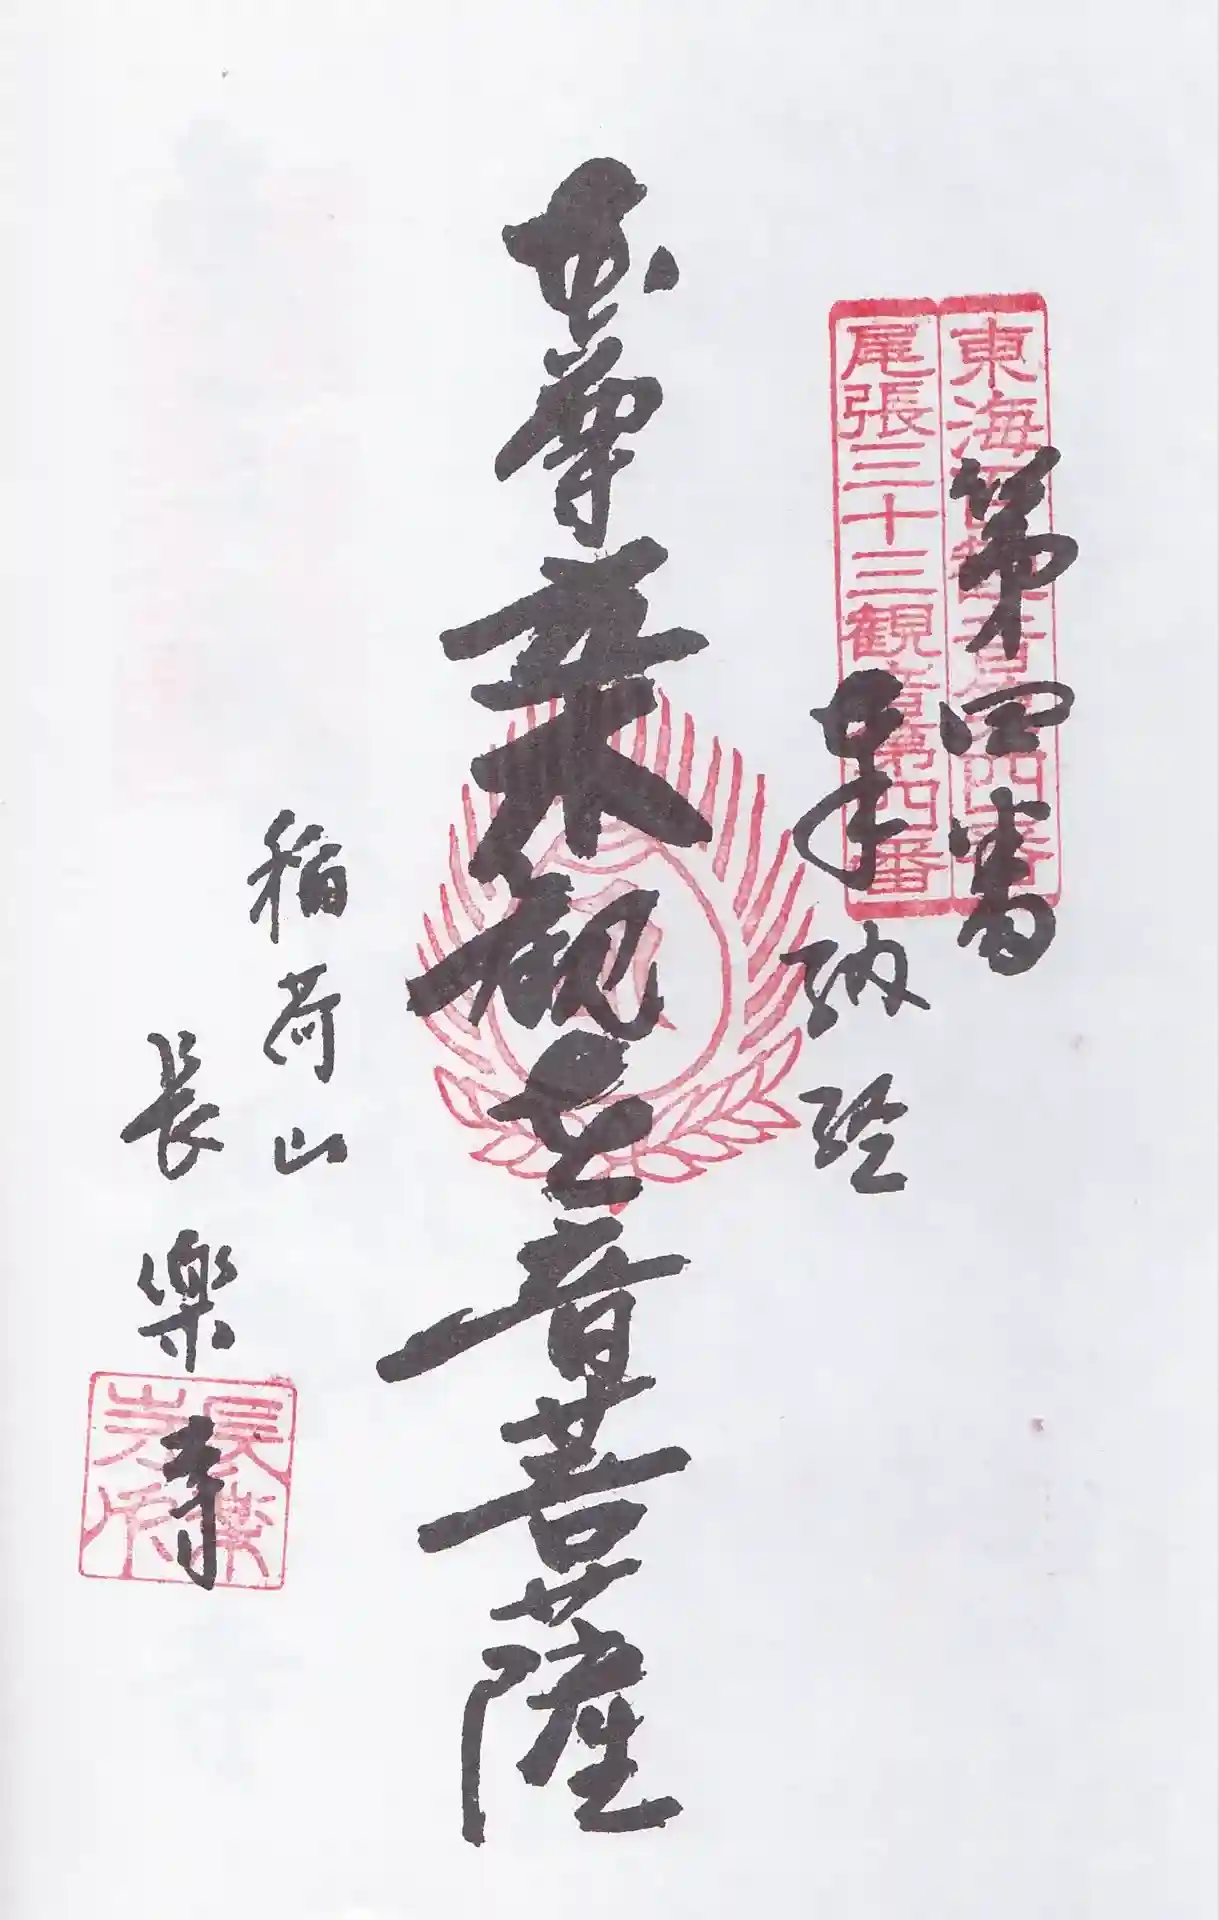 東海百観音第四番
尾張三十三観音第四番
第四番
奉納経
尊 観世音菩薩
稲荷山
長樂寺
長樂寺印